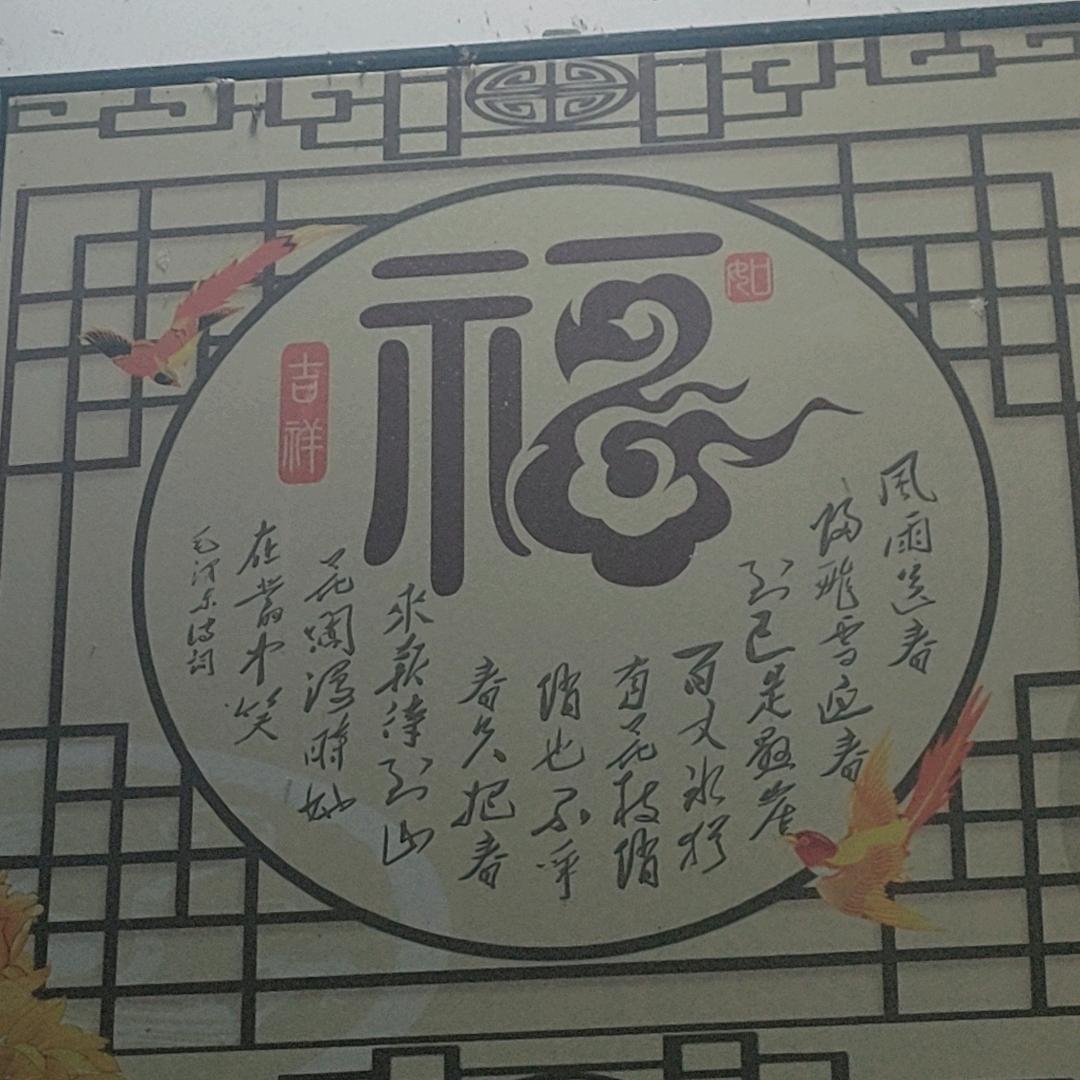 福
如
吉祥
風雨送春
歸飛雪迎春
到已是懸崖
百丈冰猶
有花枝俏
俏也不爭
春只把春
來報待到山
花爛漫時她
在叢中笑
毛澤東詩詞